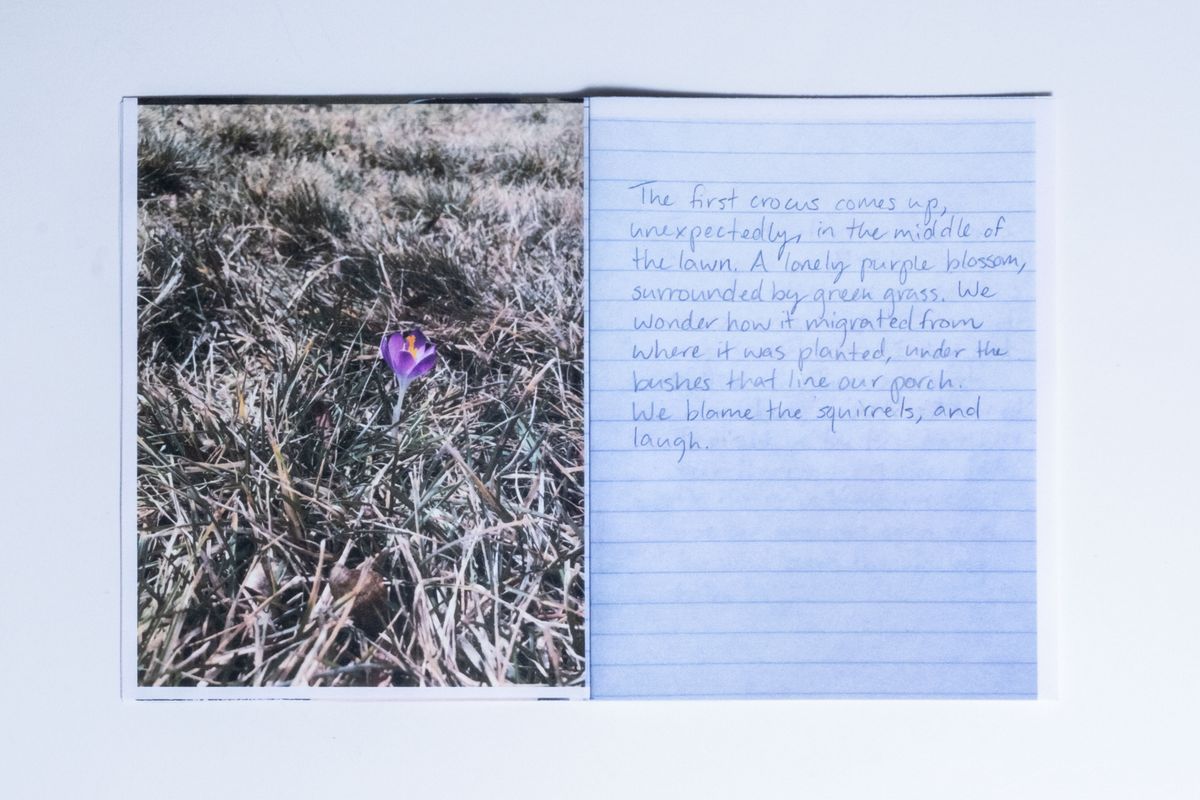 The first crocus comes up,
unexpectedly, in the middle of
the lawn. A lonely purple blossom,
surrounded by green grass. We
wonder how it migrated from
where it was planted, under the
bushes that line our porch.
We blame the squirrels, and
laugh.